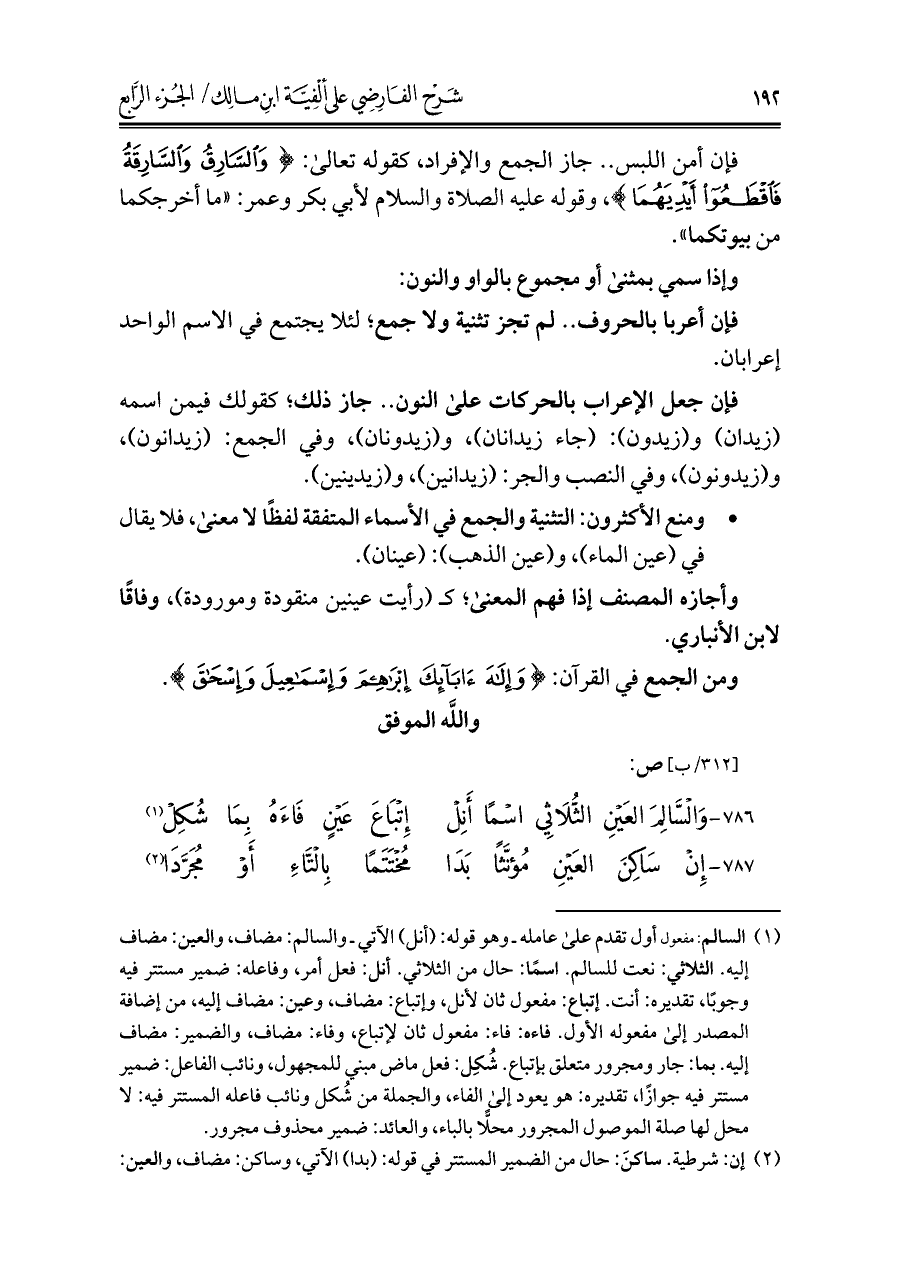 ١٩٢ شَرْح الفَارِضِي على ألْفِيَّة ابن مالك/ الجُزء الرَّابع
فإن أمن اللبس.. جاز الجمع والإفراد، كقوله تعالىٰ: ﴿ وَٱلسَّارِقُ وَٱلسَّارِقَةُ
فَٱقْطَعُوٓا۟ أَيْدِيَهُمَا ﴾، وقوله عليه الصلاة والسلام لأبي بكر وعمر: «ما أخرجكما
من بيوتكما».
وإذا سمي بمثنىٰ أو مجموع بالواو والنون:
فإن أعربا بالحروف.. لم تجز تثنية ولا جمع؛ لئلا يجتمع في الاسم الواحد
إعرابان.
فإن جعل الإعراب بالحركات علىٰ النون.. جاز ذلك؛ كقولك فيمن اسمه
(زيدان) و(زيدون): (جاء زيدانان)، و(زيدونان)، وفي الجمع: (زيدانون)،
و(زيدونون)، وفي النصب والجر: (زيدانين)، و(زيدينين).
• ومنع الأكثرون: التثنية والجمع في الأسماء المتفقة لفظًا لا معنىٰ، فلا يقال
في (عين الماء)، و(عين الذهب): (عينان).
وأجازه المصنف إذا فهم المعنىٰ؛ كـ (رأيت عينين منقودة ومورودة)، وفاقًا
لابن الأنباري.
ومن الجمع في القرآن: ﴿ وَإِلَٰهَ ءَابَآئِكَ إِبْرَٰهِـۧمَ وَإِسْمَٰعِيلَ وَإِسْحَٰقَ ﴾.
واللَّه الموفق
[٣١٢/ ب] ص:
٧٨٦-وَالسَّالِمَ العَيْنِ الثُّلَاثِي اسْمًا أَنِلْ إِتْبَاعَ عَيْنٍ فَاءَهُ بِمَا شُكِلْ(١)
٧٨٧-إِنْ سَاكِنَ العَيْنِ مُؤَنَّثًا بَدَا مُخْتَتَمًا بِالتَّاءِ أَوْ مُجَرَّدَا(٢)
(١) السالم: مفعول أول تقدم علىٰ عامله ـ وهو قوله: (أنل) الآتي ـ والسالم: مضاف، والعين: مضاف
إليه. الثلاثي: نعت للسالم. اسمًا: حال من الثلاثي. أنل: فعل أمر، وفاعله: ضمير مستتر فيه
وجوبًا، تقديره: أنت. إتباع: مفعول ثان لأنل، وإتباع: مضاف، وعين: مضاف إليه، من إضافة
المصدر إلىٰ مفعوله الأول. فاءه: فاء: مفعول ثان لإتباع، وفاء: مضاف، والضمير: مضاف
إليه. بما: جار ومجرور متعلق بإتباع. شُكِل: فعل ماض مبني للمجهول، ونائب الفاعل: ضمير
مستتر فيه جوازًا، تقديره: هو يعود إلىٰ الفاء، والجملة من شُكل ونائب فاعله المستتر فيه: لا
محل لها صلة الموصول المجرور محلًّا بالباء، والعائد: ضمير محذوف مجرور.
(٢) إن: شرطية. ساكنَ: حال من الضمير المستتر في قوله: (بدا) الآتي، وساكن: مضاف، والعين: